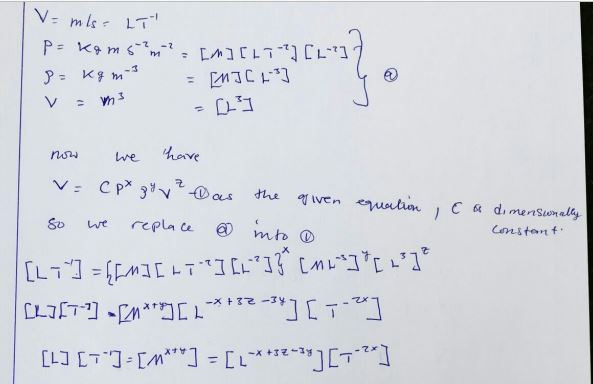 V = m/s = LT⁻¹
P = Kg m s⁻² m⁻² = [M][LT⁻²][L⁻²]
ρ = Kg m⁻³ = [M][L⁻³]
V = m³ = [L³]
} ⓐ
now we have
V = C Pˣ ρʸ Vᶻ —① as the given equation, C is dimensionally constant.
So we replace ⓐ into ①
[LT⁻¹] = {[M][LT⁻²][L⁻²]}ˣ [ML⁻³]ʸ [L³]ᶻ
[L][T⁻¹] = [Mˣ⁺ʸ][L⁻ˣ⁺³ᶻ⁻³ʸ][T⁻²ˣ]
[L][T⁻¹] = [Mˣ⁺ʸ] = [L⁻ˣ⁺³ᶻ⁻³ʸ][T⁻²ˣ]